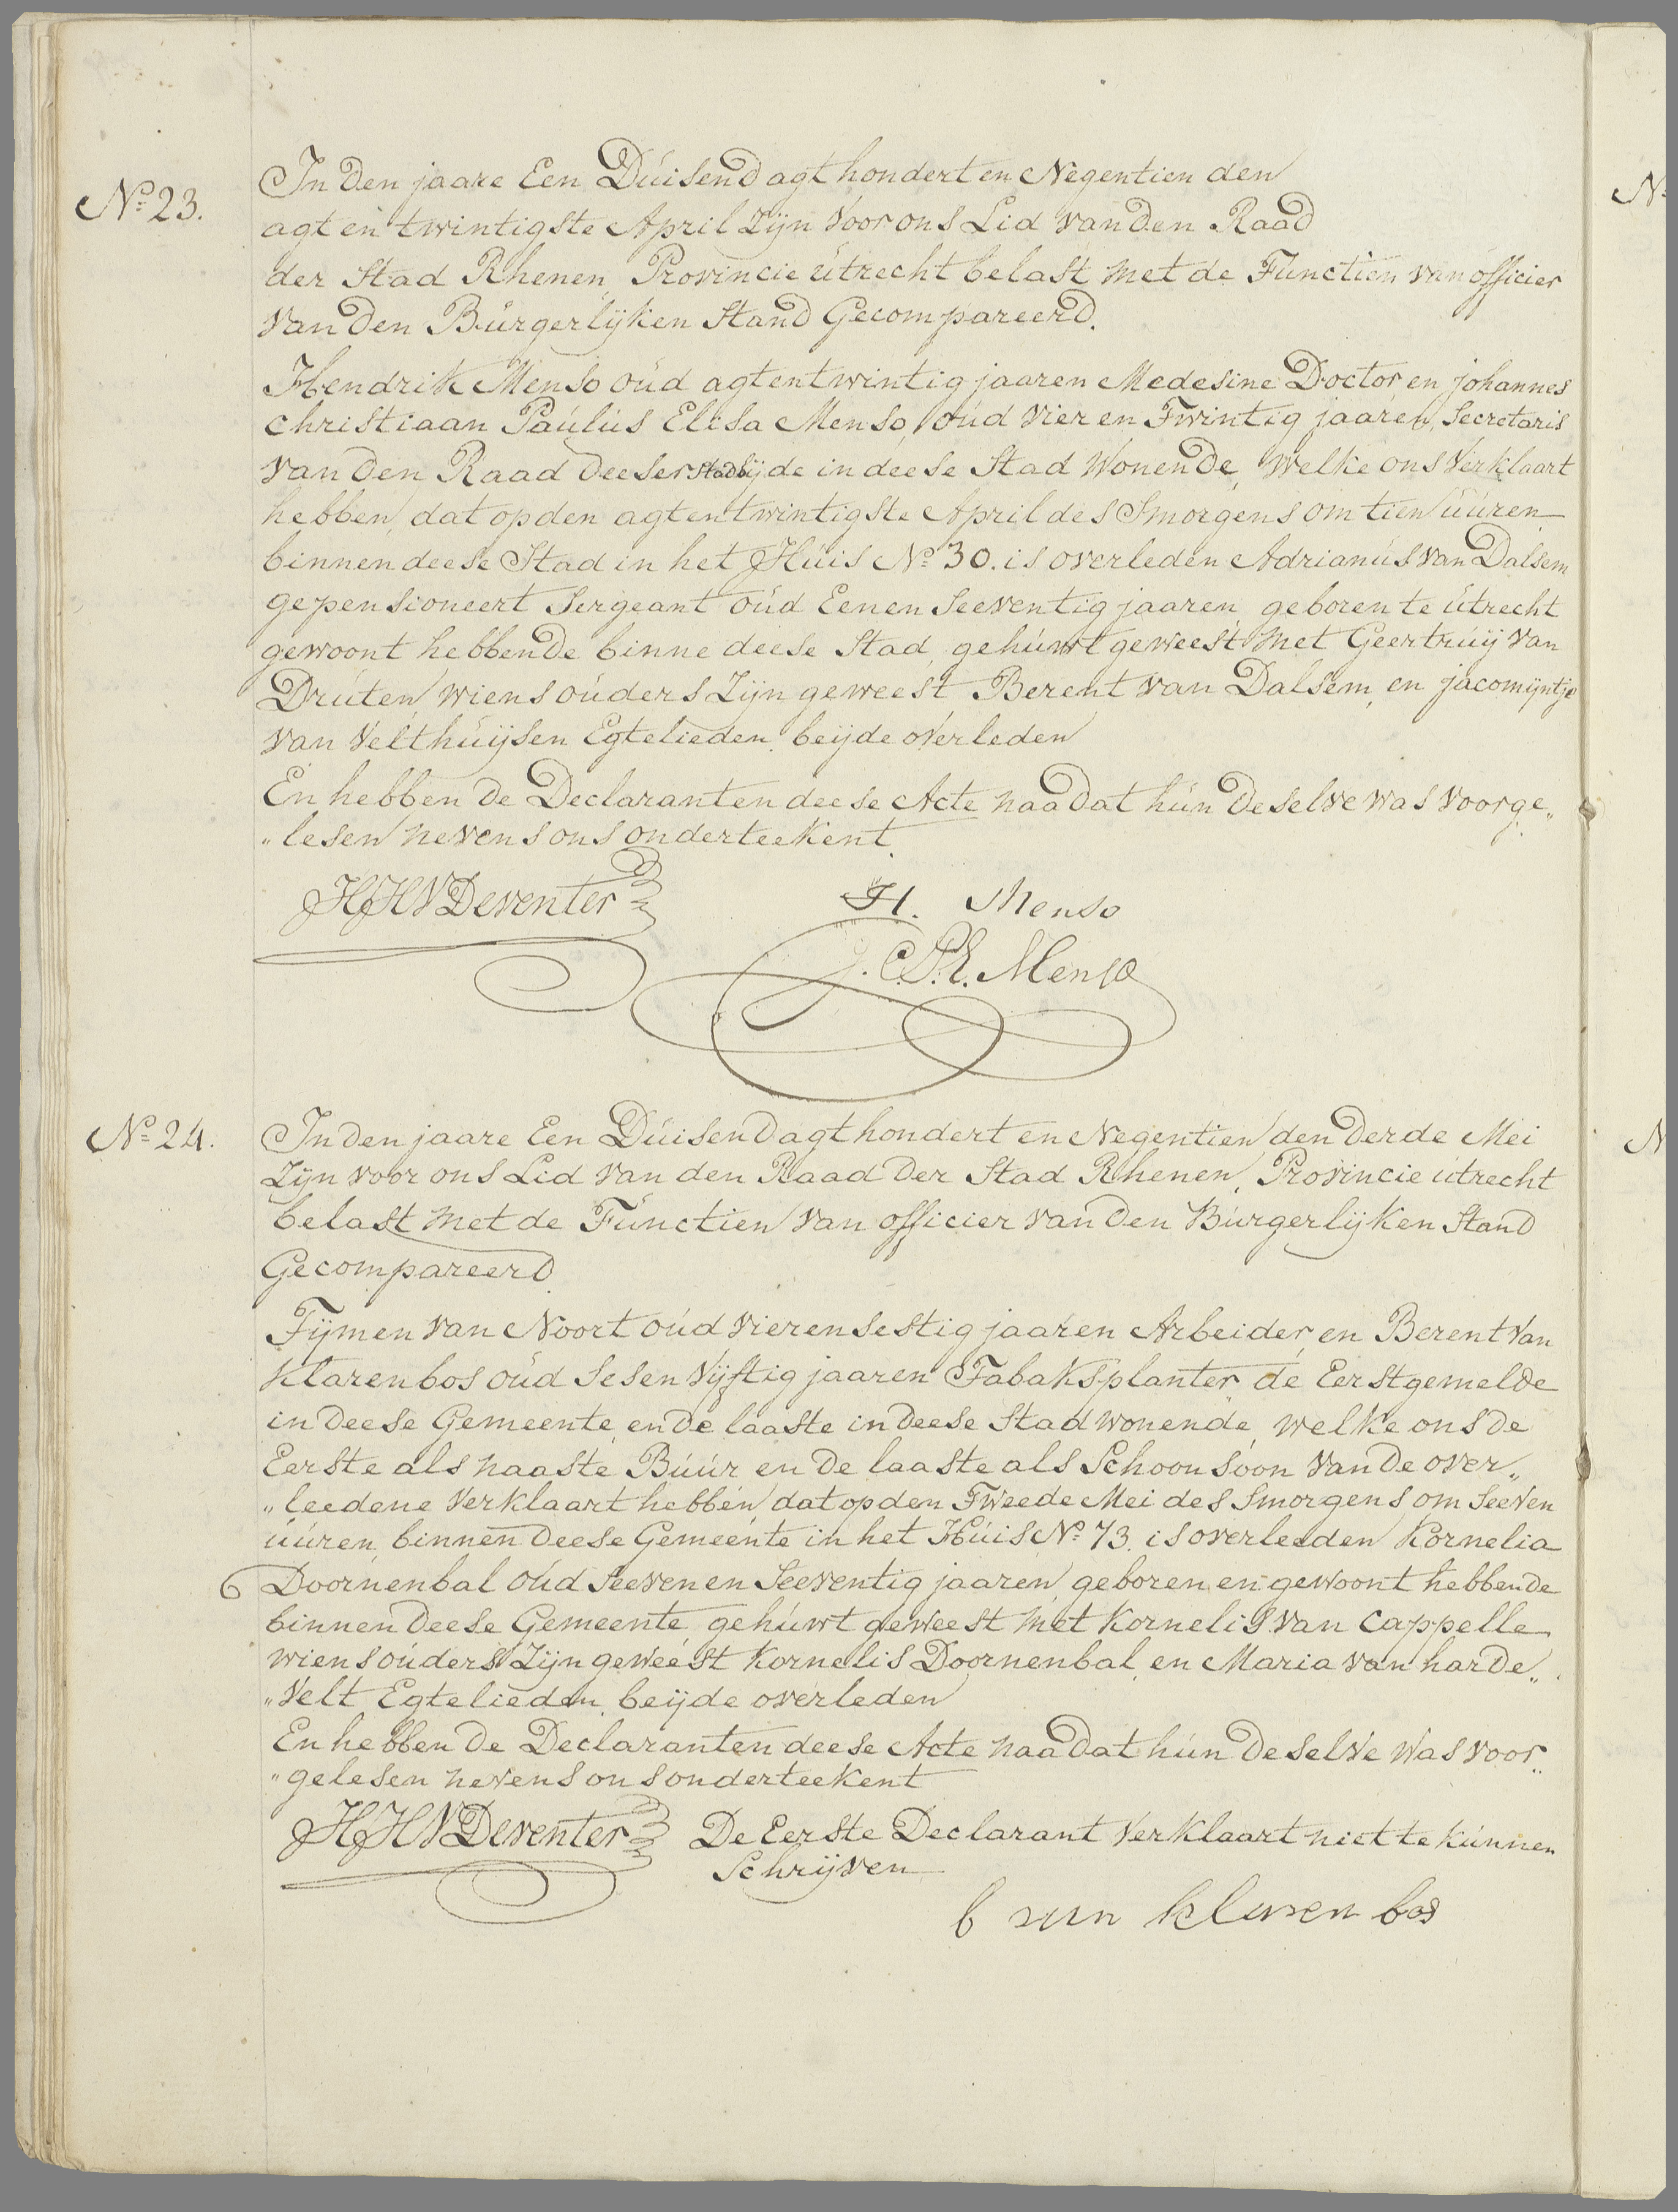 No 23.
In den jaare Een Duisend agt hondert en Negentien den
agt en twintigste April Zijn Voor ons Lid van den Raad
der Stad Rhenen, Provincie utrecht belast met de Functien van officier
van den Burgerlijken Stand Gecompareerd.
Hendrik Menso oud agtentwintig jaaren Medesine Doctor en johannes
Christiaan Paulus Elisa Menso, oud vier en Twintig jaaren, Secretaris
van den Raad deeser stad bijde in deese Stad Wonende, Welke ons Verklaart
hebben, dat op den agtentwintigste April des Smorgens om tien uuren
binnen deese Stad in het Huis No 30. is overleden Adrianus van Dalsem
gepensioneert Sergeant oud Eenen Seeventig jaaren, geboren te utrecht
gewoont hebbende binne deese Stad, gehuwt geweest met Geertruij van
Druten, wiens ouders Zijn geweest Berent van Dalsem, en jacomijntje
van Velthuijsen Egtelieden, beijde overleden
En hebben de Declaranten deese Acte naa dat hun deselve was voorge„
„lesen nevens ons onderteekent.
HHVDeventer
H. Menso
J. C. P. E. Menso
No 24.
In den jaare Een Duisend agt hondert en Negentien, den derde Mei
Zijn voor ons Lid van den Raad der Stad Rhenen, Provincie utrecht
belast met de Functien van officier van den Burgerlijken Stand
Gecompareerd
Tijmen van Noort oud vierensestig jaaren Arbeider, en Berent van
klarenbos oud Sesen Vijftig jaaren Tabaksplanter, de Eerstgemelde
in deese Gemeente, en de laaste in deese Stad wonende, welke ons de
Eerste als naaste Buur en de laaste als Schoonsoon van de over„
„leedene Verklaart hebben, dat op den Tweede Mei des Smorgens, om Seeven
uuren, binnen deese Gemeente in het Huis No 73. is overleeden Kornelia
Doornenbal oud Seevenen Seeventig jaaren, geboren en gewoont hebbende
binnen deese Gemeente gehuwt geweest met Kornelis van Cappelle
wiens ouders Zijn geweest Kornelis Doornenbal, en Maria van harde„
„velt Egtelieden, beijde overleden
En hebben de Declaranten deese Acte naa dat hun deselve was voor„
„gelesen nevens ons onderteekent
HHVDeventer De Eerste Declarant Verklaart niet te kunnen
Schrijven
b van klaren bos